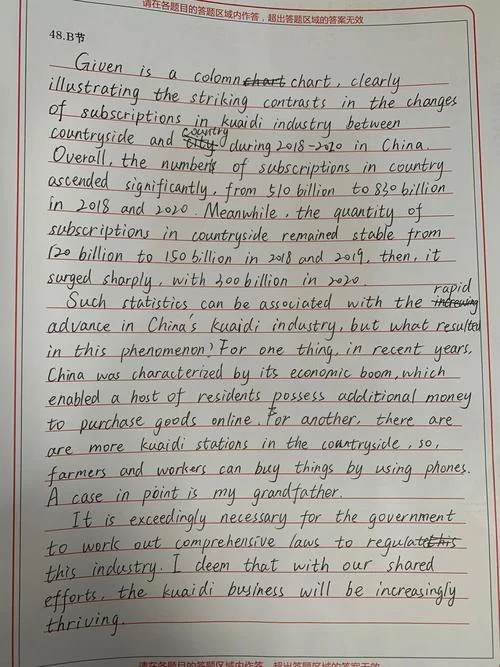 请在各题目的答题区域内作答，超出答题区域的答案无效
48.B节
Given is a colomn chart chart, clearly
illustrating the striking contrasts in the changes
of subscriptions in kuaidi industry between
country
countryside and city during 2018-2020 in China.
Overall, the numbers of subscriptions in country
ascended significantly, from 510 billion to 830 billion
in 2018 and 2020. Meanwhile, the quantity of
subscriptions in countryside remained stable from
120 billion to 150 billion in 2018 and 2019, then, it
surged sharply, with 300 billion in 2020.
rapid
Such statistics can be associated with the increasing
advance in China's kuaidi industry, but what resulted
in this phenomenon? For one thing, in recent years,
China was characterized by its economic boom, which
enabled a host of residents possess additional money
to purchase goods online. For another, there are
are more kuaidi stations in the countryside, so,
farmers and workers can buy things by using phones.
A case in point is my grandfather.
It is exceedingly necessary for the government
to work out comprehensive laws to regulate this
this industry. I deem that with our shared
efforts, the kuaidi business will be increasingly
thriving.
请在各题目的答题区域内作答，超出答题区域的答案无效